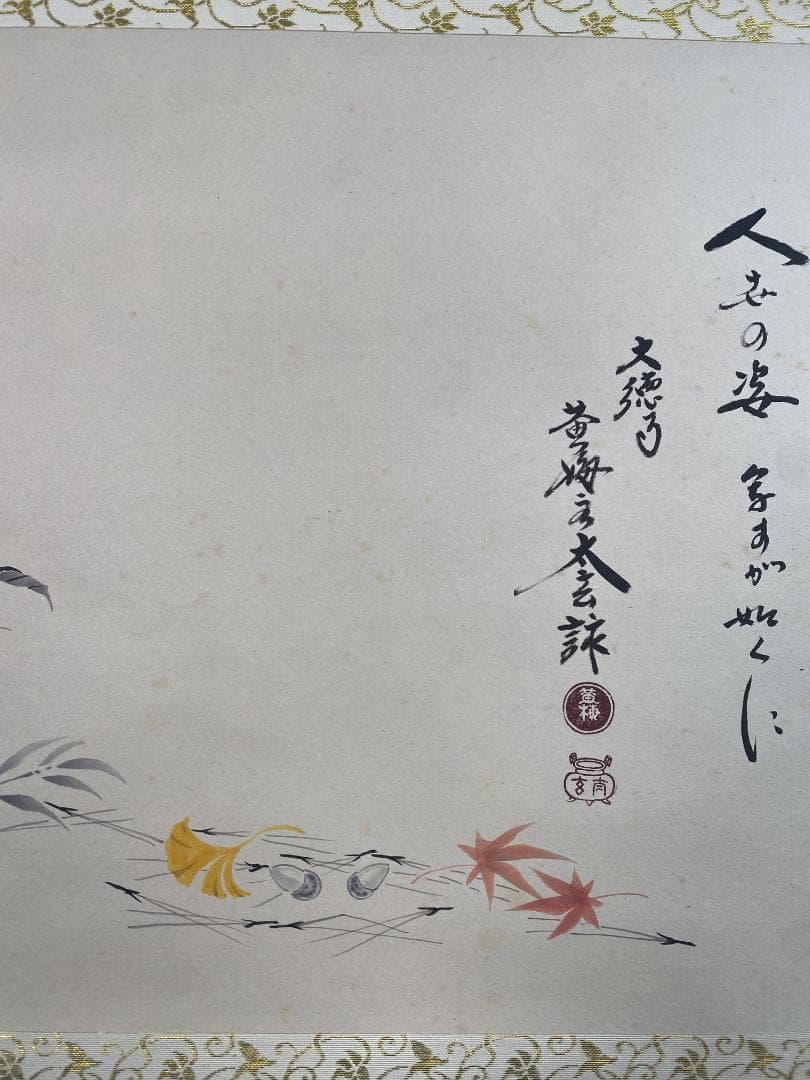 人世の姿 写すが如くに
大徳寺
黄梅主太玄詠
黄梅
玄